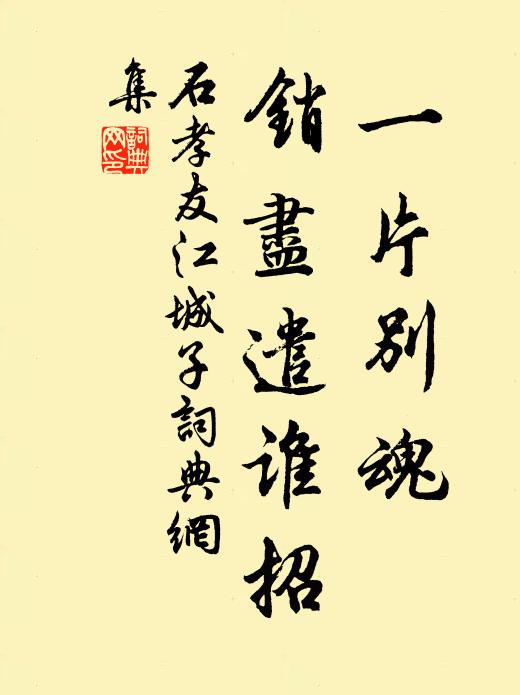 一片別魂
銷盡遣誰招
石孝友江城子詞典網
集
詞典
网印